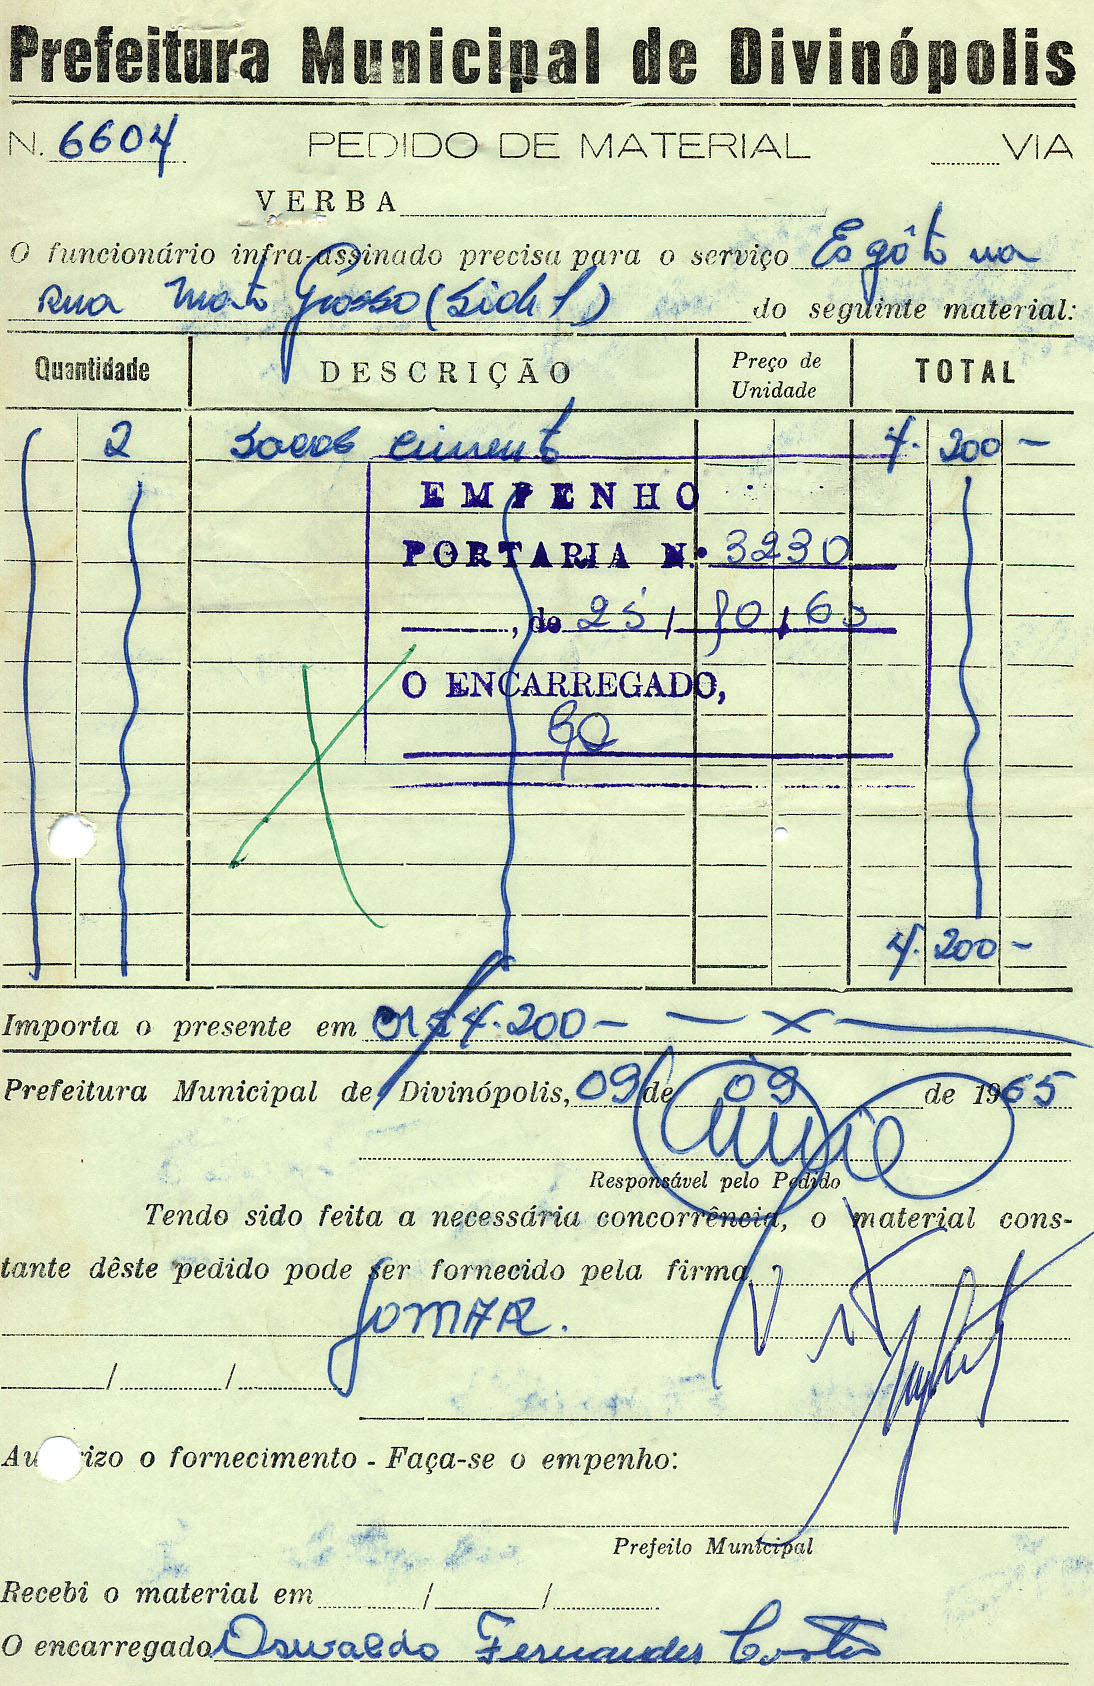 Prefeitura Municipal de Divinópolis
N. 6604 PEDIDO DE MATERIAL VIA
VERBA
O funcionário infra-assinado precisa para o serviço Esgôto na
Rua Mato Grosso ( do seguinte material:
Quantidade DESCRIÇÃO Preço de Unidade TOTAL
2 Sacos cimento 4.200 -
EMPENHO
PORTARIA N.º 3230
, de 25 / 10 / 65
O ENCARREGADO,
4.200 -
Importa o presente em Cr$ 4.200 - — x —
Prefeitura Municipal de Divinópolis, 09 de 09 de 1965
Responsável pelo Pedido
Tendo sido feita a necessária concorrência, o material cons-
tante dêste pedido pode ser fornecido pela firma
JOMAR.
/ /
Autorizo o fornecimento - Faça-se o empenho:
Prefeito Municipal
Recebi o material em / /
O encarregado Oswaldo Fernandes